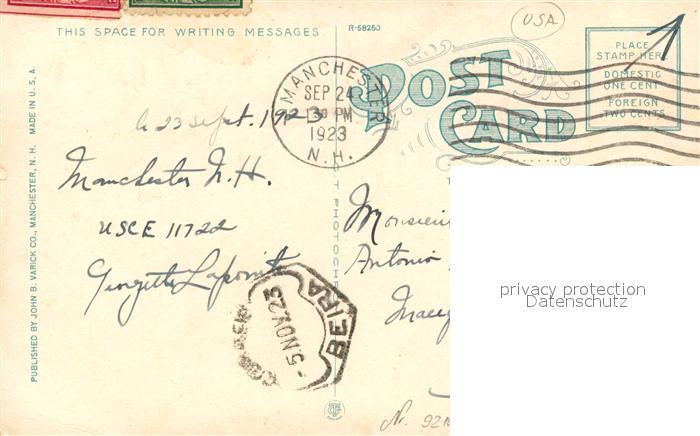 THIS SPACE FOR WRITING MESSAGES
R-58250
USA
POST
CARD
PLACE
STAMP HERE
DOMESTIC
ONE CENT
FOREIGN
TWO CENTS
MANCHESTER
SEP 24
PM
1923
N.H.
23 Sept. 1923
Manchester N.H.
USCE 11722
Georgette Lapointe
Monsieur
Antonio
BEIRA
-5 NOV. 23
PUBLISHED BY JOHN B. VARICK CO., MANCHESTER, N. H. MADE IN U. S. A.
privacy protection
Datenschutz